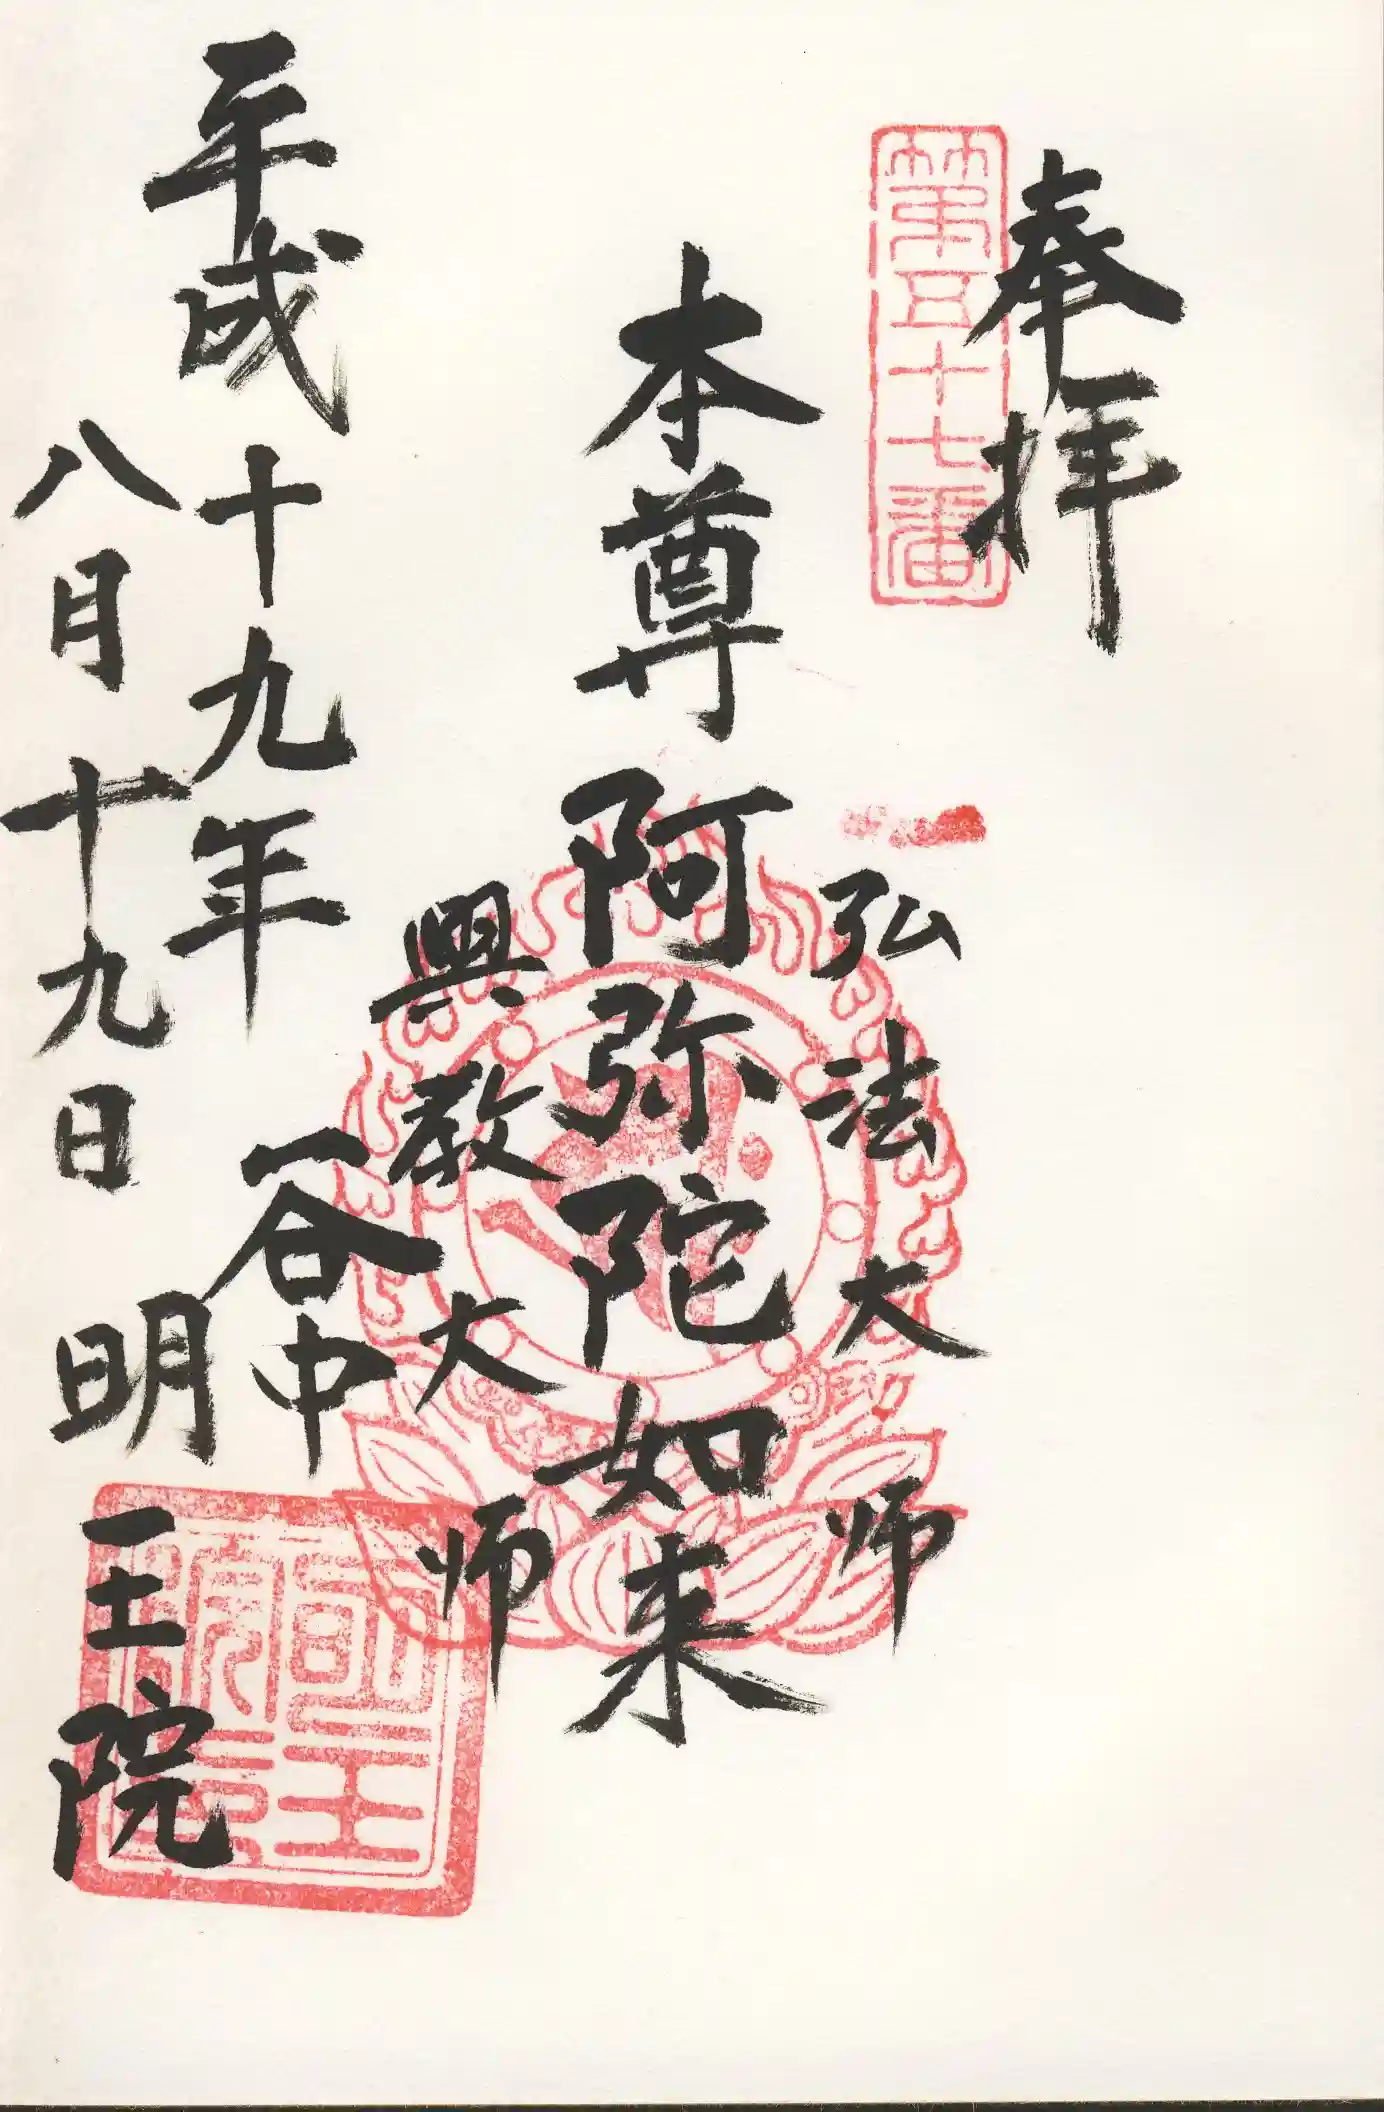 奉拝
第五十七番
弘法大师
本尊阿弥陀如来
興教大师
谷中
平成十九年
八月十九日
明王院